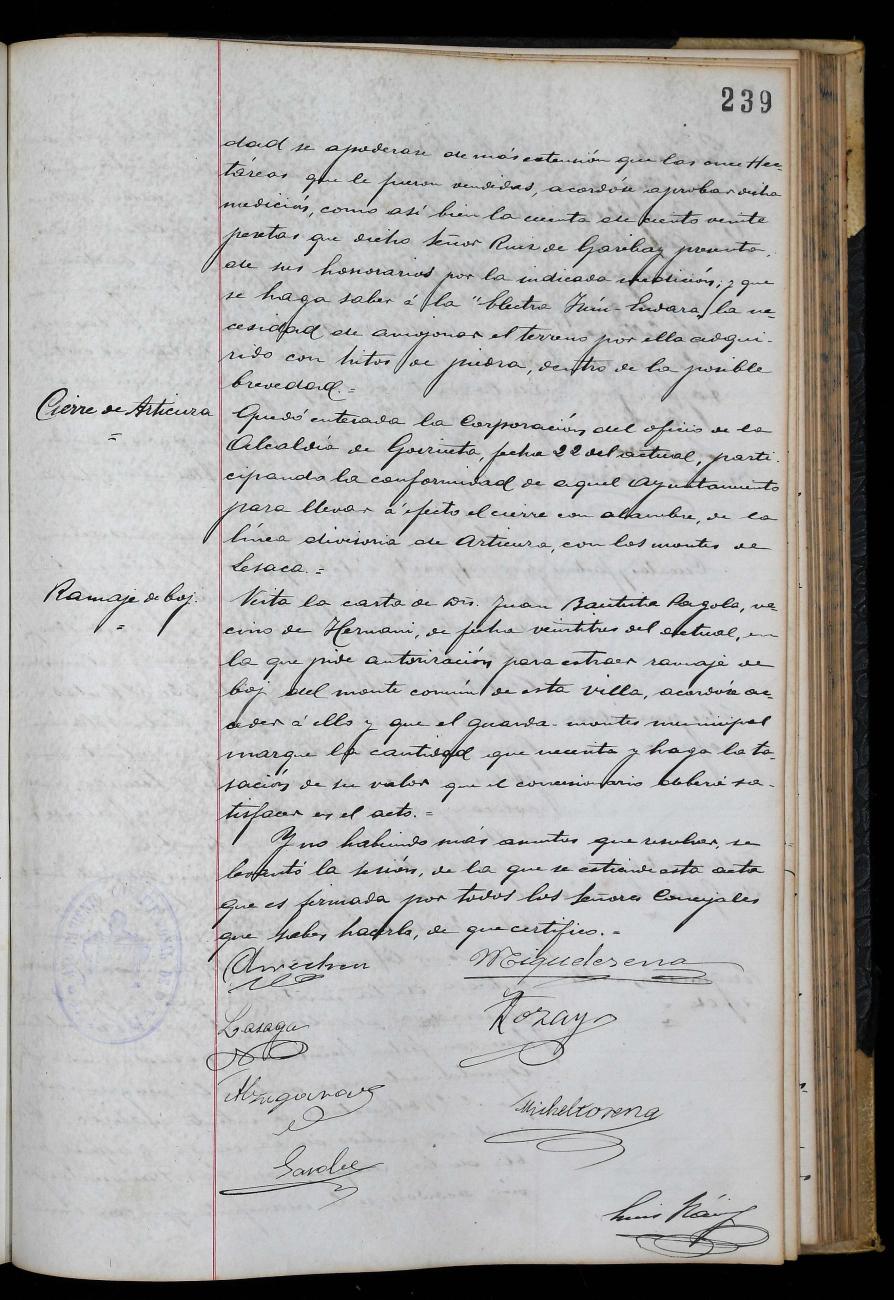 239
dad se apoderase de más extensión que las once Hec-
táreas que le fueron vendidas, acordóse aprobar dicha
medición, como así bien la cuenta de ciento veinte
pesetas que dicho Señor Ruiz de Garibay presenta,
de sus honorarios por la indicada medición; y que
se haga saber á la "Electra Irún-Endara, la ne-
cesidad de amojonar el terreno por ella adqui-
rido con hitos de piedra, dentro de la posible
brevedad.=
Cierre de Articura
=
Quedó enterada la Corporación del oficio de la
Alcaldía de Goizueta, fecha 22 del actual, parti-
cipando la conformidad de aquel Ayuntamiento
para llevar á efecto el cierre con alambre, de la
línea divisoria de Articura, con los montes de
Lesaca.=
Ramaje de boj.
=
Vista la carta de Dn. Juan Bautista Pagola, ve-
cino de Hernani, de fecha veintitres del actual, en
la que pide autorización para estraer ramaje de
boj del monte común de esta villa, acordóse ac-
ceder á ello y que el guarda-montes municipal
marque la cantidad que necesita y haga la ta-
sación de su valor que el concesionario deberá sa-
tisfacer en el acto.=
Y no habiendo más asuntos que resolver, se
levantó la sesión, de la que se estiende esta acta
que es firmada por todos los Señores Concejales
que saben hacerlo, de que certifico.=
Miguelerena
Lasaga
Tozay
Michelxorena
Luis